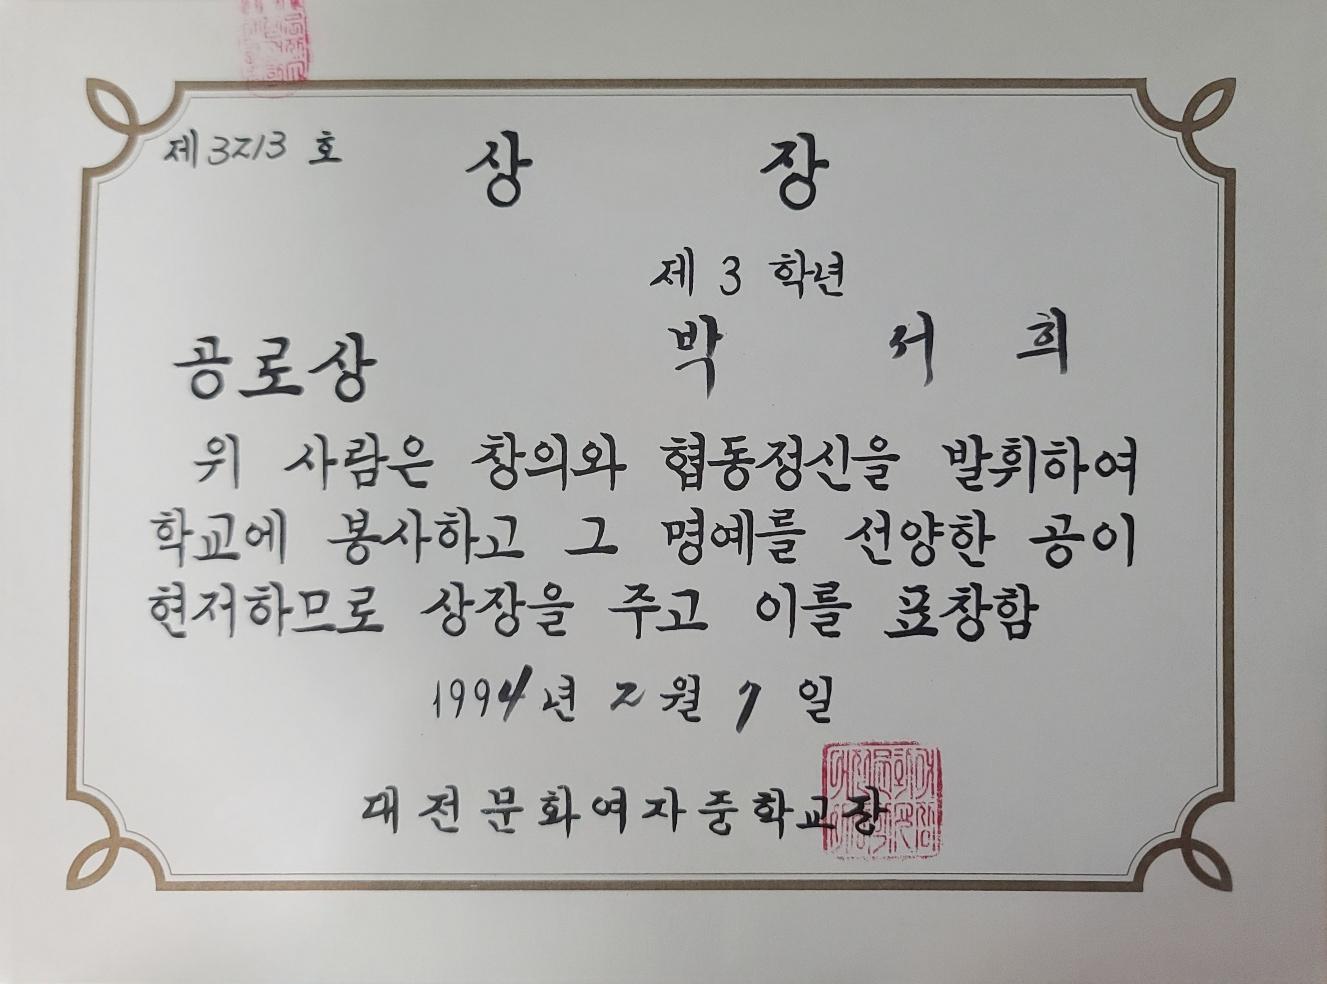 제3213 호
상 장
제 3 학년
공로상 박 서 희
위 사람은 창의와 협동정신을 발휘하여
학교에 봉사하고 그 명예를 선양한 공이
현저하므로 상장을 주고 이를 표창함
1994년 2월 7 일
대전문화여자중학교장